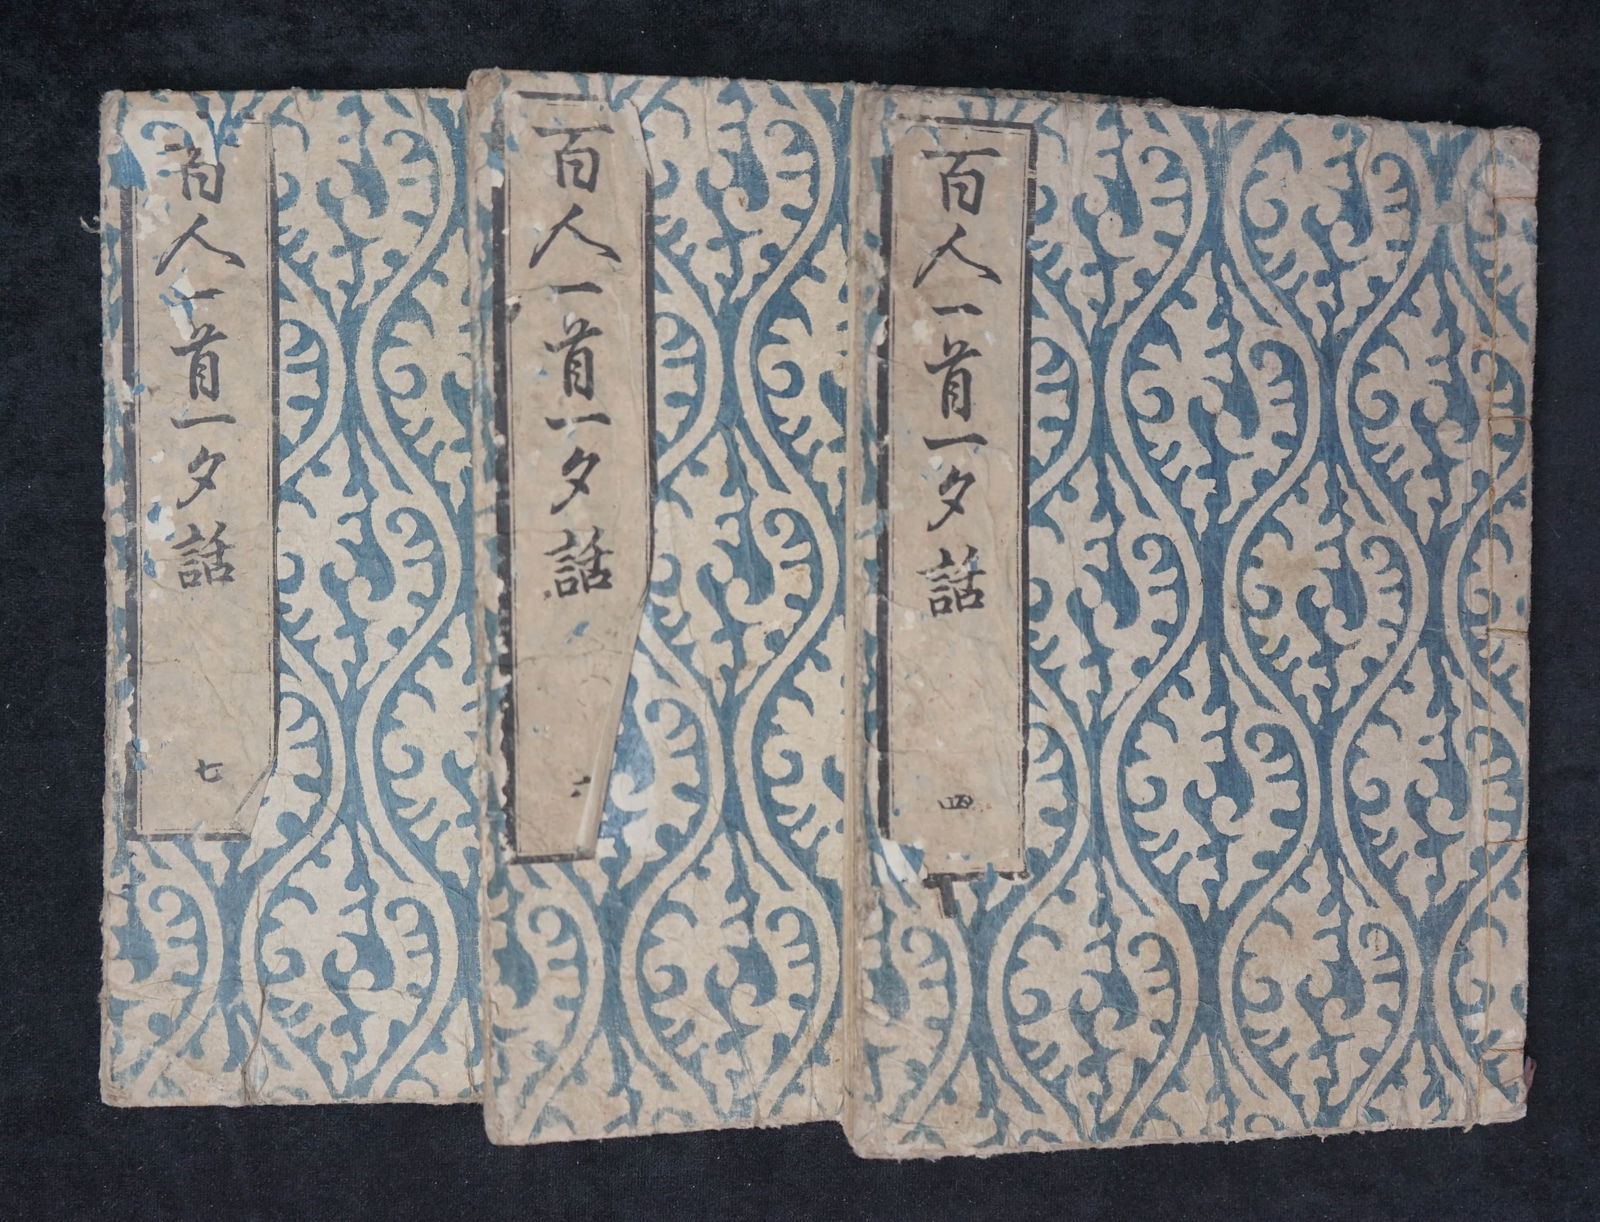 百人一首一夕話
四
百人一首一夕話
百人一首一夕話
七